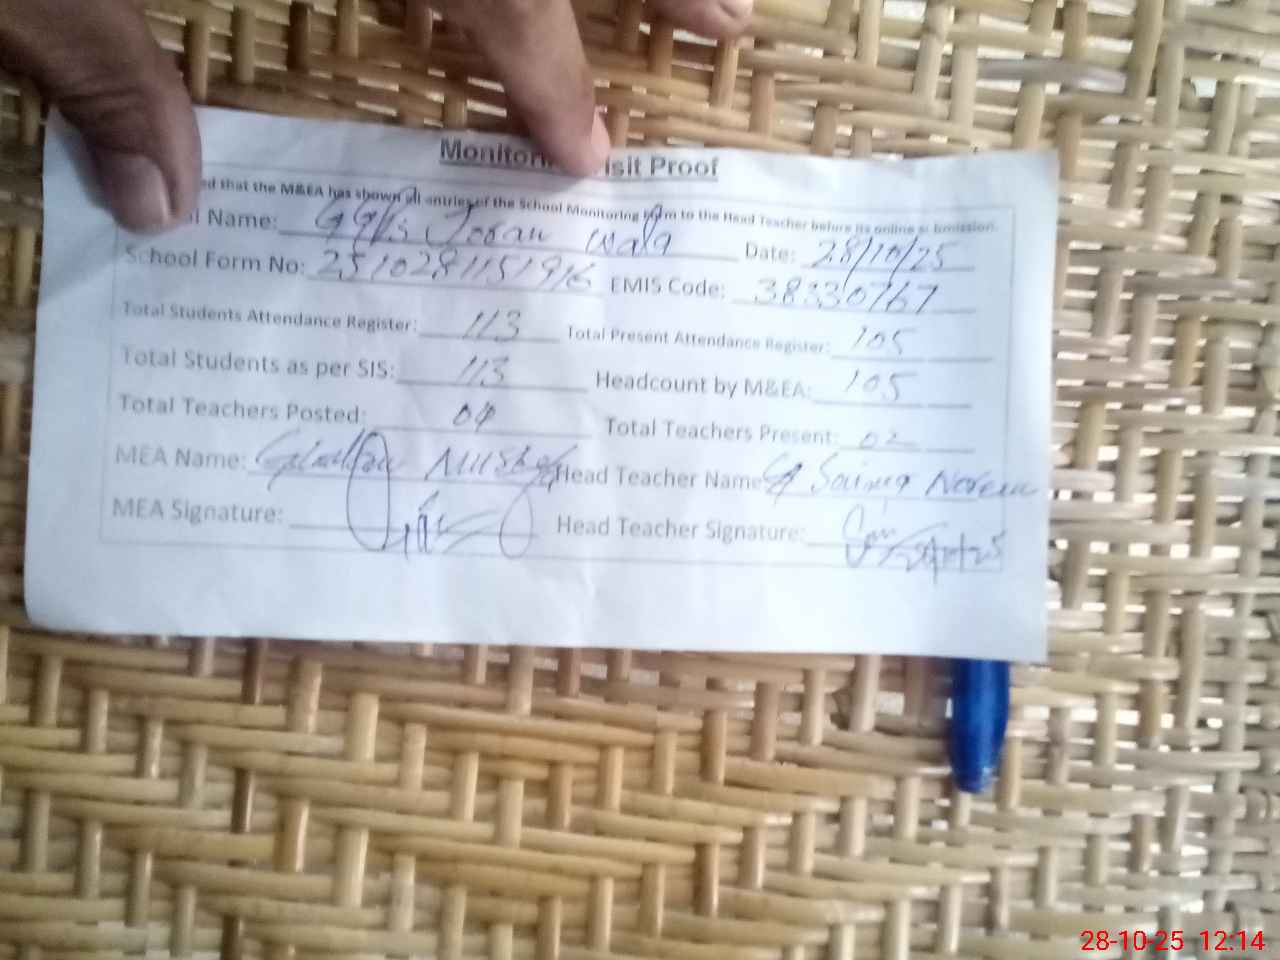 Monitori isit Proof
ed that the M&EA has shown all entries of the School Monitoring Form to the Head Teacher before its online submission.
l Name: GGPS Joban Wala Date: 28/10/25
School Form No: 2510281151916 EMIS Code: 38330767
Total Students Attendance Register: 113 Total Present Attendance Register: 105
Total Students as per SIS: 113 Headcount by M&EA: 105
Total Teachers Posted: 04 Total Teachers Present: 02
MEA Name: Head Teacher Name Saima Noreen
MEA Signature: Head Teacher Signature: 28/10/25
28-10-25 12:14